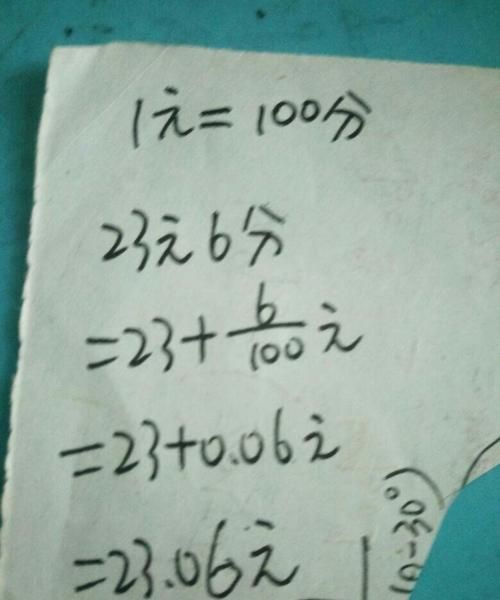 1元=100分
23元6分
=23+6/100元
=23+0.06元
=23.06元